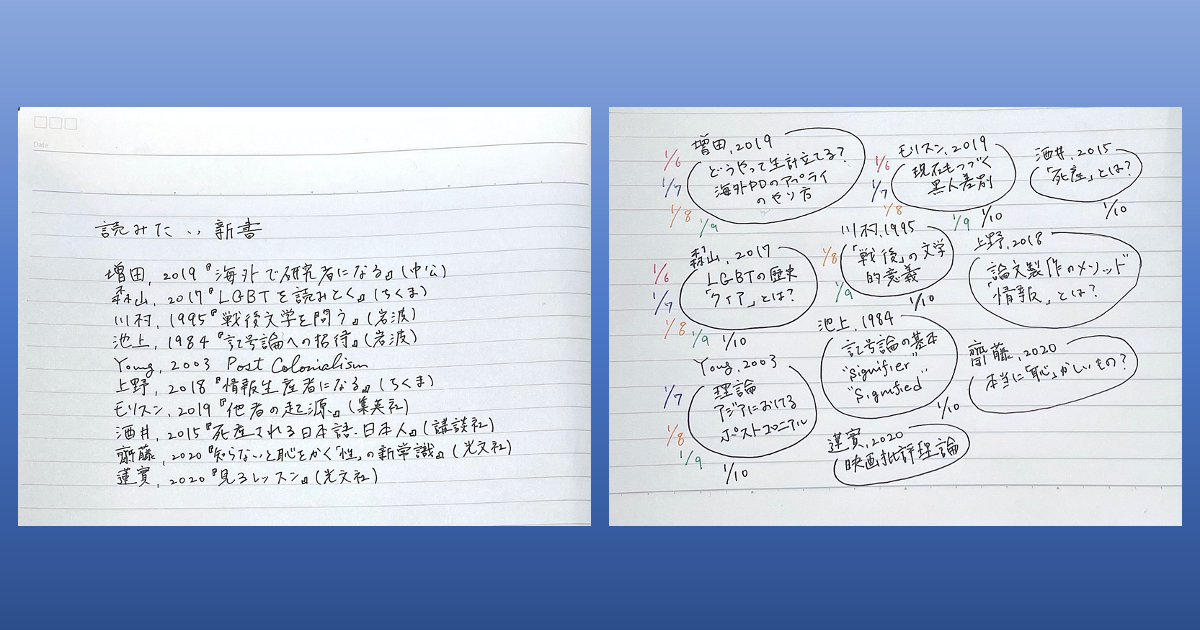 Date
読みたい新書
増田, 2019『海外で研究者になる』(中公)
森山, 2017『LGBTを読みとく』(ちくま)
川村, 1995『戦後文学を問う』(岩波)
池上, 1984『記号論への招待』(岩波)
Young, 2003 Post Colonialism
上野, 2018『情報生産者になる』(ちくま)
モリスン, 2019『他者の起源』(集英社)
酒井, 2015『死産される日本語・日本人』(講談社)
齋藤, 2020『知らないと恥をかく「性」の新常識』(光文社)
蓮實, 2020『見るレッスン』(光文社)
増田, 2019
どうやって生計立てる?
海外PDのアプライ
のやり方
1/6
1/7
1/8
1/9
モリスン, 2019
現在もつづく
黒人差別
1/6
1/7
1/8
1/9
1/10
酒井, 2015
「死産」とは?
1/10
森山, 2017
LGBTの歴史
「クィア」とは?
1/6
1/7
1/8
1/9
1/10
川村, 1995
「戦後」の文学
的意義
1/8
1/9
1/10
上野, 2018
論文製作のメソッド
「情報」とは?
Young, 2003
理論
アジアにおける
ポストコロニアル
1/7
1/8
1/9
1/10
池上, 1984
記号論の基本
"signifier"
"signified"
1/10
齋藤, 2020
本当に「恥」かしいもの?
蓮實, 2020
映画批評理論